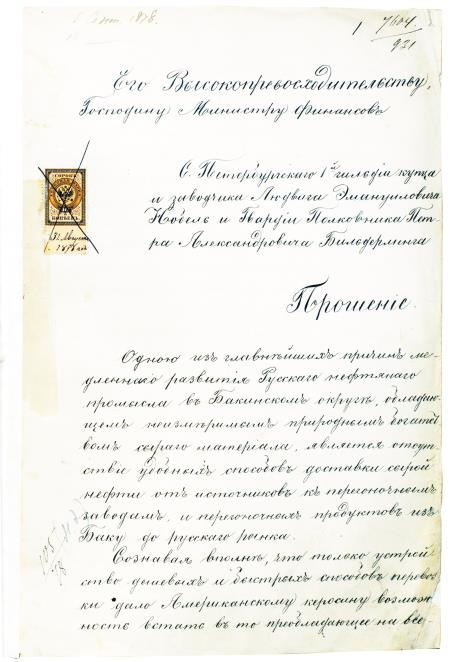 7604
921
Его Высокопревосходительству,
Господину Министру Финансовъ
С. Петербургскаго 1ой гильдіи купца
и заводчика Людвига Эмануиловича
Нобель и Гвардіи Полковника Пет-
ра Александровича Бильдерлинга
СОРОКЪ
КОПѢЕКЪ
31. Августа
1878
Прошеніе.
Одною изъ главнѣйшихъ причинъ ме-
дленнаго развитія Русскаго нефтянаго
промысла въ Бакинскомъ округѣ, обладаю-
щемъ неизмѣримымъ природнымъ богатст-
вомъ сыраго матеріала, является отсут-
ствіе удобныхъ способовъ доставки сырой
нефти отъ источниковъ къ перегоночнымъ
заводамъ, и перегоночныхъ продуктовъ изъ
Баку до русскаго рынка.
Сознавая вполнѣ, что только устрой-
ство дешевыхъ и быстрыхъ способовъ перевоз-
ки дало Американскому керосину возмож-
ность встать въ то преобладающее на все-